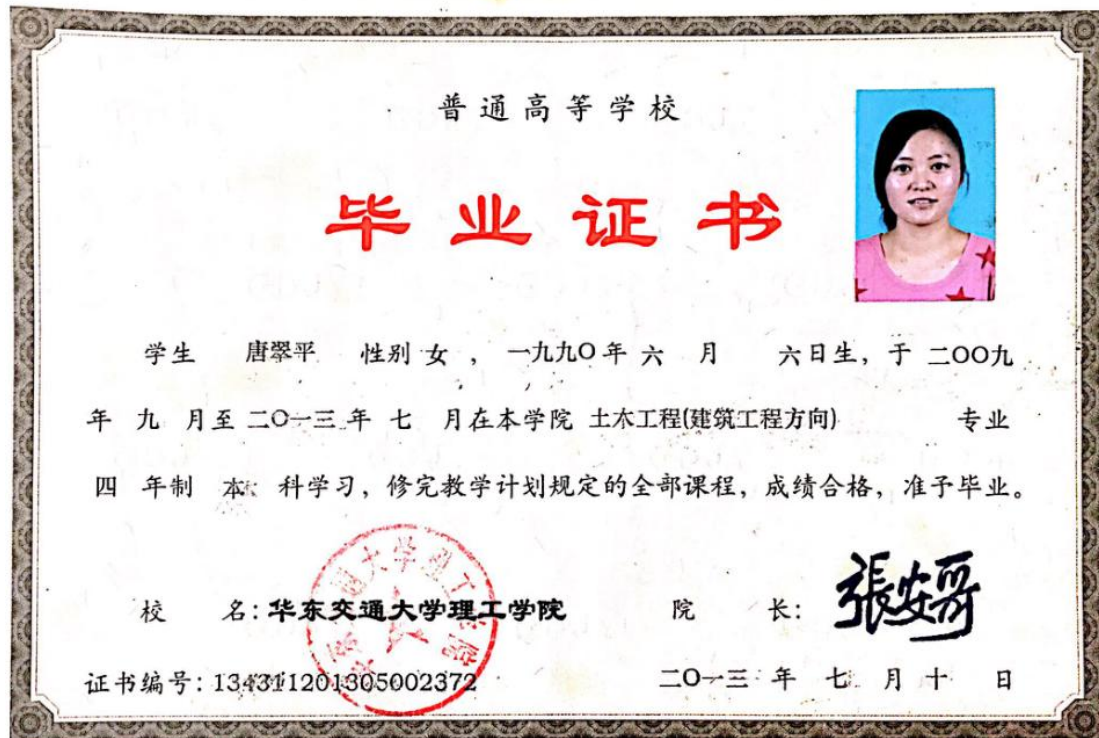 普通高等学校
毕业证书
学生 唐翠平 性别 女 ， 一九九〇年 六 月 六日生，于 二〇〇九
年 九 月至 二〇一三年 七 月在本学院 土木工程(建筑工程方向) 专业
四 年制 本 科学习，修完教学计划规定的全部课程，成绩合格，准予毕业。
校 名：华东交通大学理工学院 院 长：張安哥
证书编号：134311201305002372 二〇一三 年 七 月 十 日